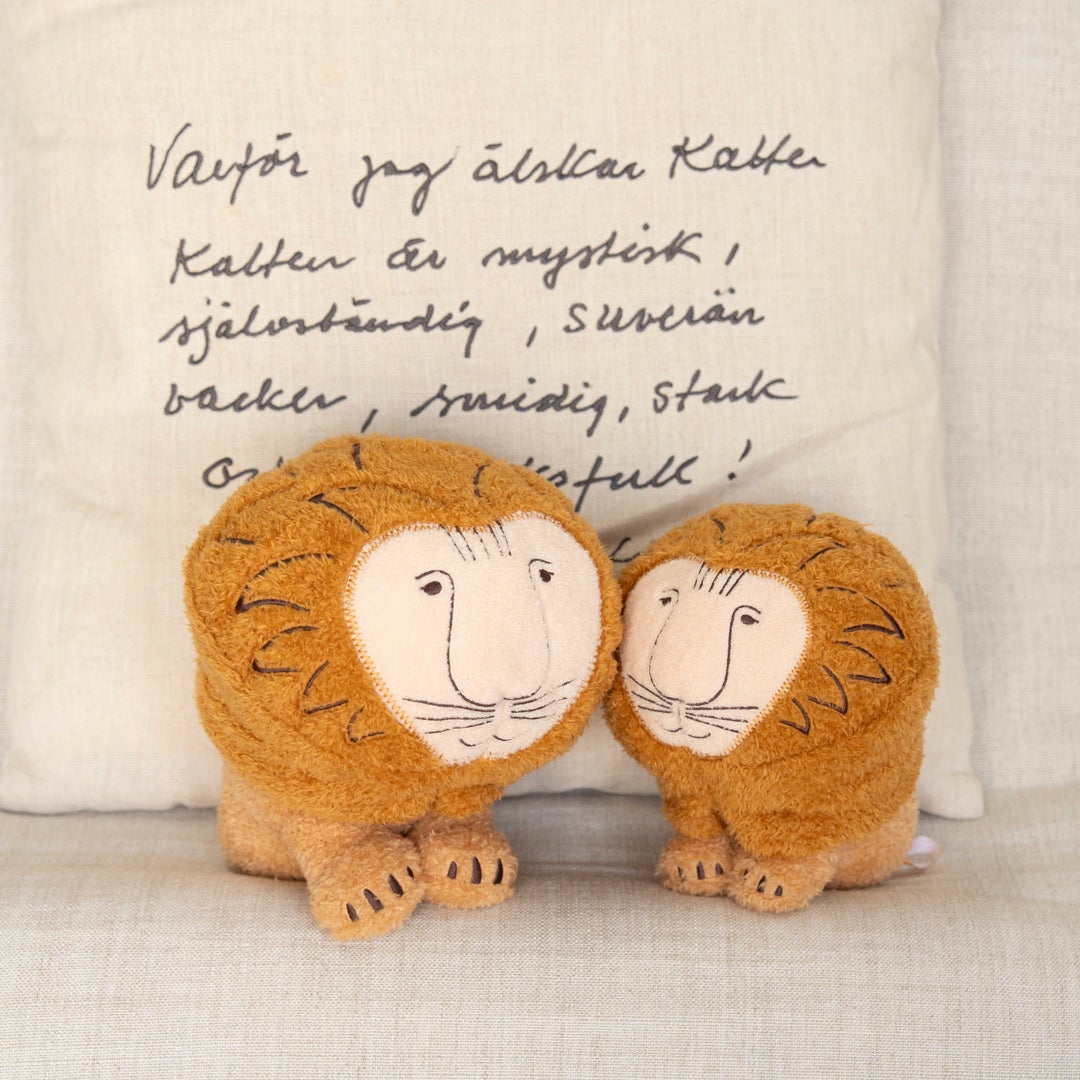 Varför jag älskar Katten
Katten är mystisk,
självständig, suverän
vacker, smidig, stark
!